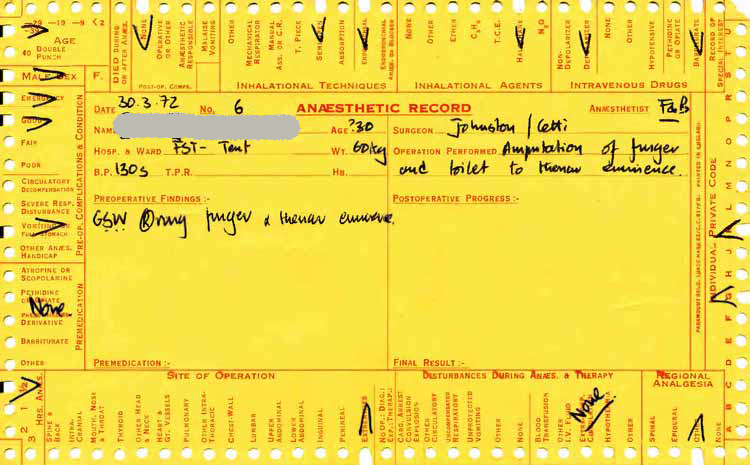 -29 -19 -9 < 2
-39
AGE
40 DOUBLE PUNCH
MALE SEX F.
DIED DURING OR AFTER ANÆS.
NONE
OPERATIVE OR OTHER
ANÆSTHETIC RESPONSIBLE
MALAISE VOMITING
POST-OP. COMPS.
OTHER
MECHANICAL RESPIRATOR
MANUAL ASS. OR C.R.
T. PIECE
ABSORPTION
INHALATIONAL TECHNIQUES
NONE
OTHER
ETHER
C₃H₆
T.C.E.
N₂O
INHALATIONAL AGENTS
NON-DEPOLARIZER
DEPOLARIZER
NONE
OTHER
HYPOTENSIVE
PETHIDINE OR OPIATE
INTRAVENOUS DRUGS
RECORD OF SPECIAL INTEREST
EMERGENCY
GOOD
FAIR
POOR
CIRCULATORY DECOMPENSATION
SEVERE RESP. DISTURBANCE
VOMITING OR FULL STOMACH
OTHER ANÆS. HANDICAP
PRE-OP. COMPLICATIONS & CONDITION
ATROPINE OR SCOPOLAMINE
PETHIDINE OR OPIATE
None.
DERIVATIVE
BARBITURATE
OTHER
PREMEDICATION
DATE 30.3.72 NO. 6 ANÆSTHETIC RECORD ANÆSTHETIST FaB
NAME AGE ?30 SURGEON Johnston / Cetti
HOSP. & WARD FST- Tent WT. 60kg OPERATION PERFORMED Amputation of finger
B.P. 130s T.P.R. HB. and toilet to thenar eminence.
PREOPERATIVE FINDINGS :- POSTOPERATIVE PROGRESS :-
GSW (R) ring finger & thenar eminence.
PREMEDICATION :- FINAL RESULT :-
PRINTED IN ENGLAND.
INDIVIDUAL PRIVATE CODE
A B C D E F G H J K L M N O P R S T U
3 2 1 ½
HRS. ANÆS.
SITE OF OPERATION
SPINE & BACK
INTRA-CRANIAL
MOUTH, NOSE & THROAT
THYROID
OTHER HEAD & NECK
HEART & GT. VESSELS
PULMONARY
OTHER INTRA-THORACIC
CHEST-WALL
LUMBAR
UPPER ABDOMINAL
LOWER ABDOMINAL
INGUINAL
PERINEAL
EXTREMITIES
DISTURBANCES DURING ANÆS. & THERAPY
NO OP. (DIAG. OR THERAP.)
CARD. ARREST CONVULSION EXPLOSION
OTHER CIRCULATORY
UNCOMPENSATED RESPIRATORY
UNPROTECTED VOMITING
OTHER
NONE
BLOOD TRANSFUSION
OTHER I.V. FLUID
None
HYPOTHERMIA
OTHER
REGIONAL ANALGESIA
SPINAL
EPIDURAL
NONE